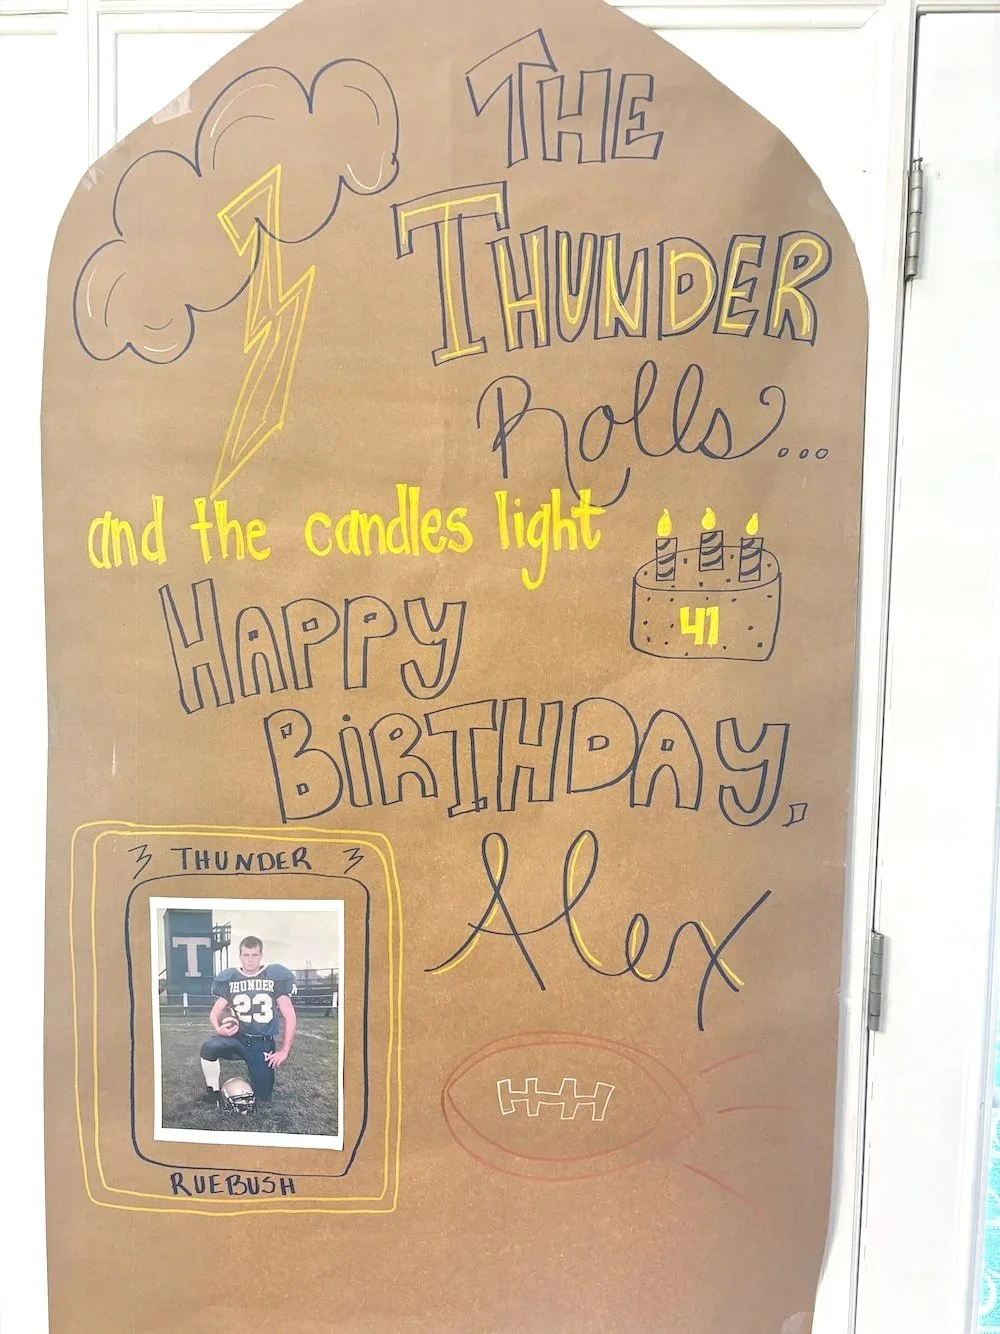 THE
THUNDER
Rolls...
and the candles light
41
HAPPY
BiRTHDAY,
Alex
THUNDER
T
THUNDER
23
RUEBUSH